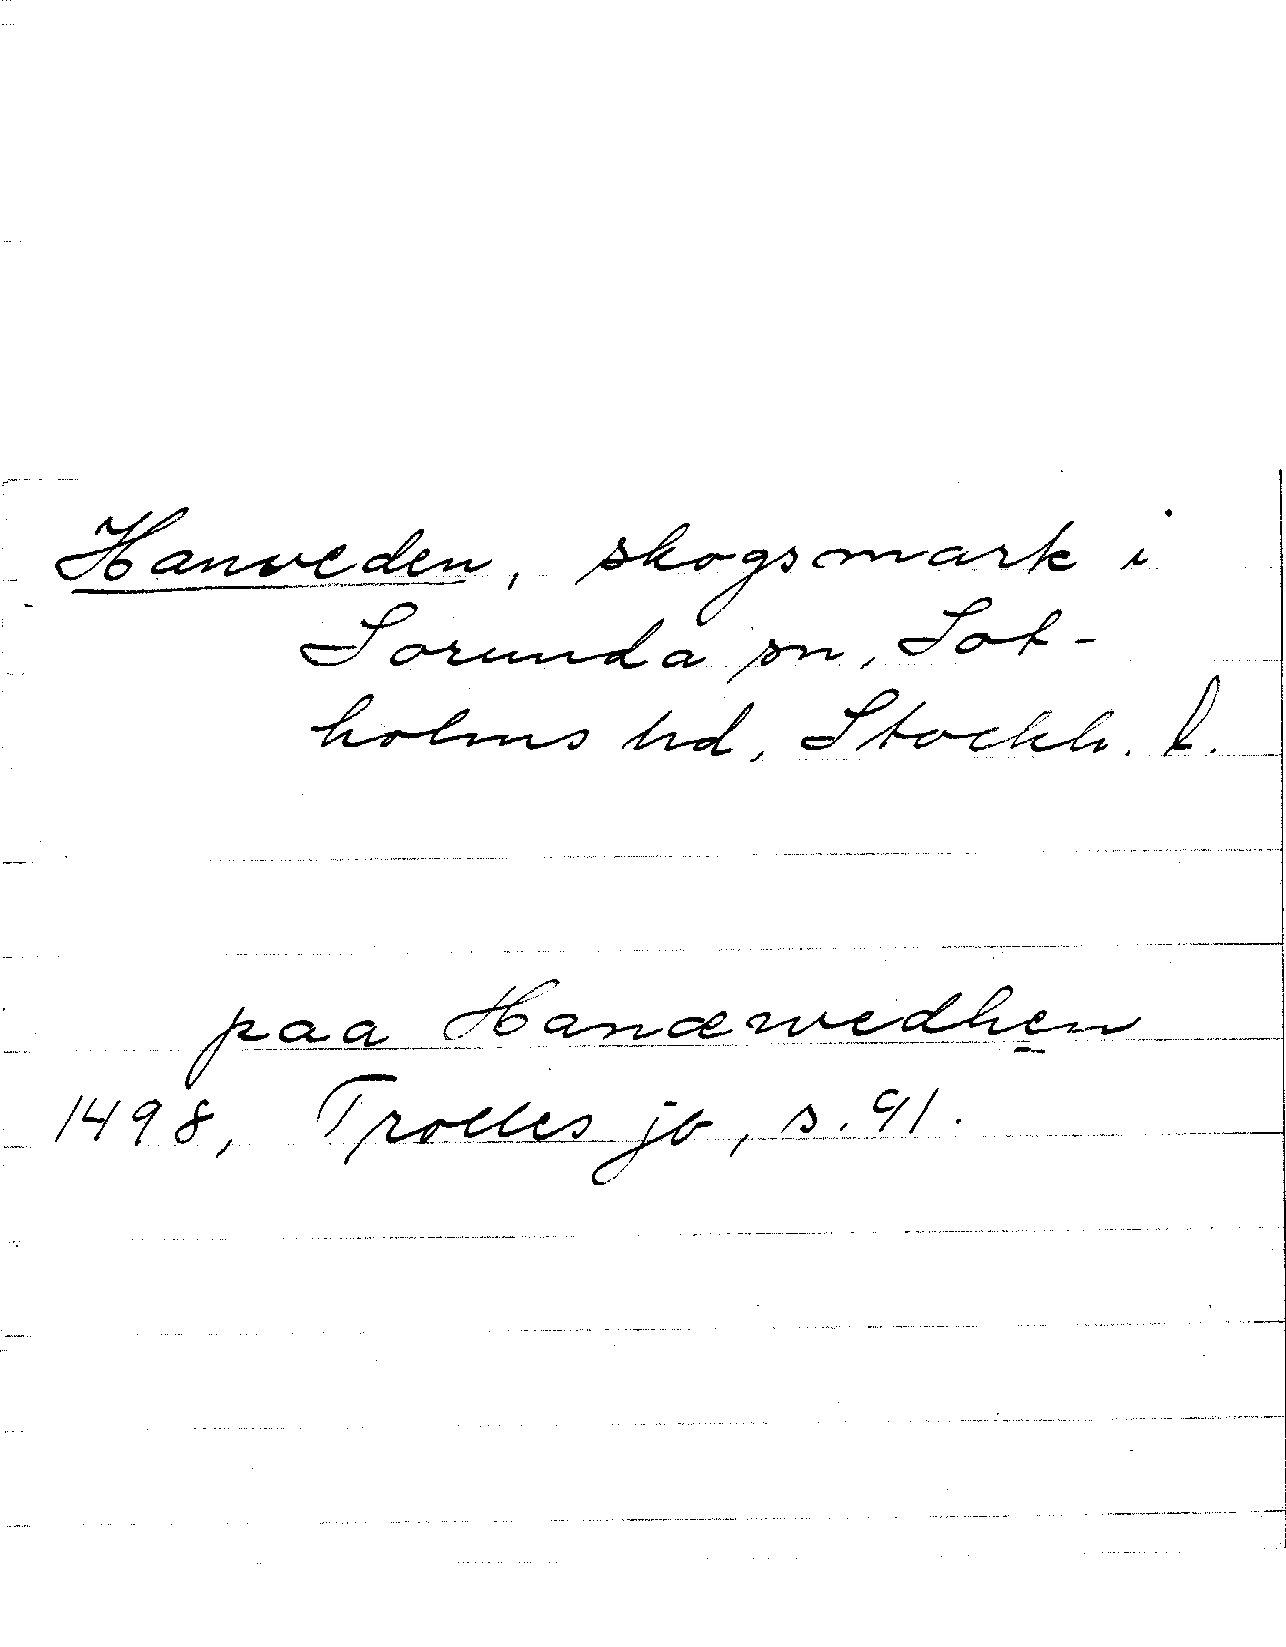 Hanveden, skogsmark i
Sorunda sn, Sot-
holms hd, Stockh. l.
paa Hanæwedhen
1498, Trolles jb, s. 91.